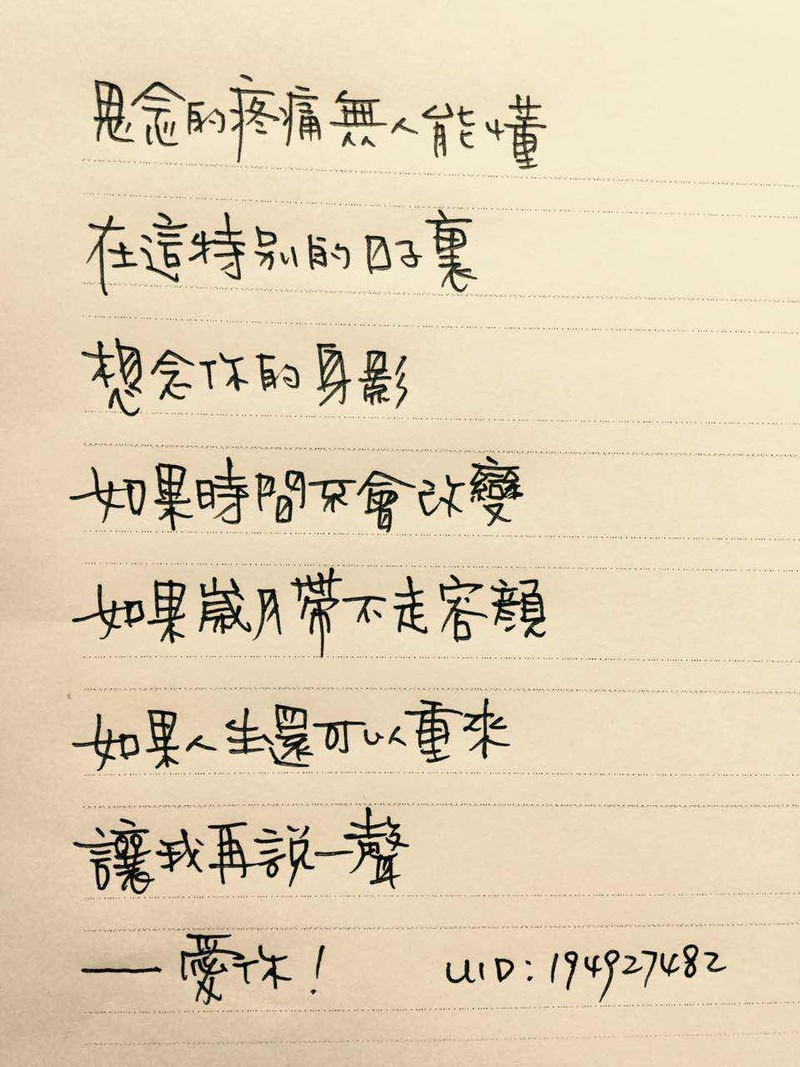 思念的疼痛無人能懂
在這特別的日子裏
想念你的身影
如果時間不會改變
如果歲月帶不走容顏
如果人生還可以重來
讓我再説一聲
——愛你！ UID：194927482